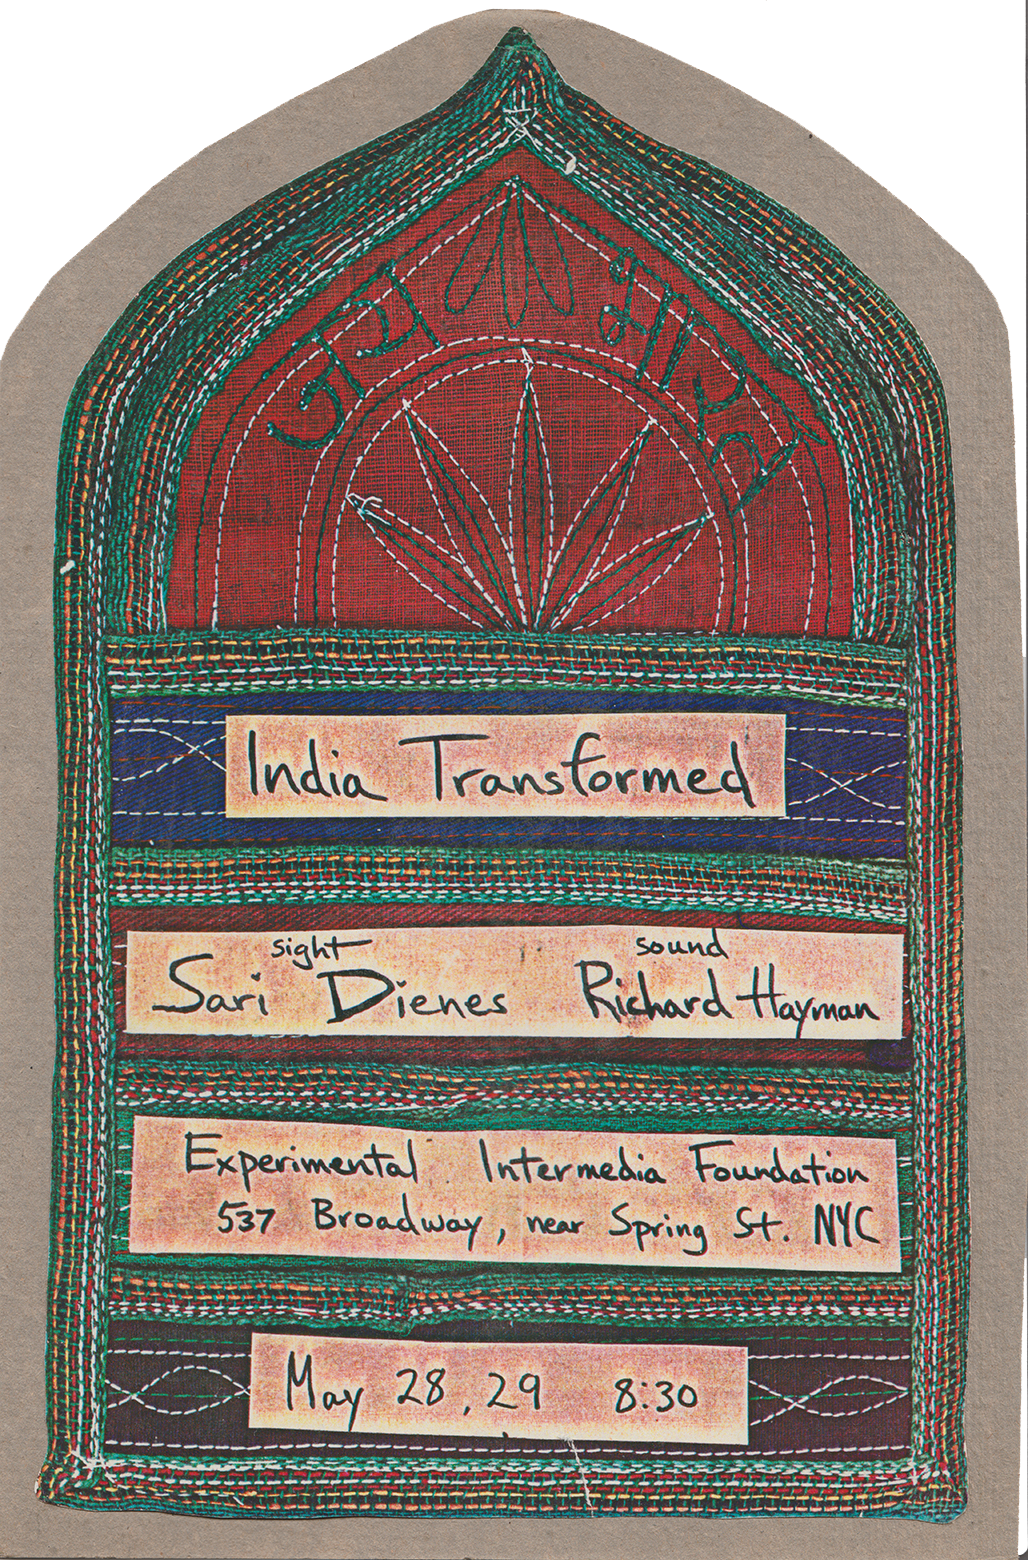 जय भारत
India Transformed
sight sound
Sari Dienes Richard Hayman
Experimental Intermedia Foundation
537 Broadway, near Spring St. NYC
May 28, 29 8:30